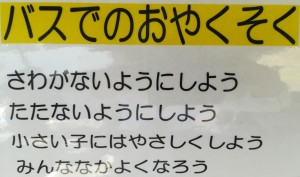 バスでのおやくそく
さわがないようにしよう
たたないようにしよう
小さい子にはやさしくしよう
みんななかよくなろう